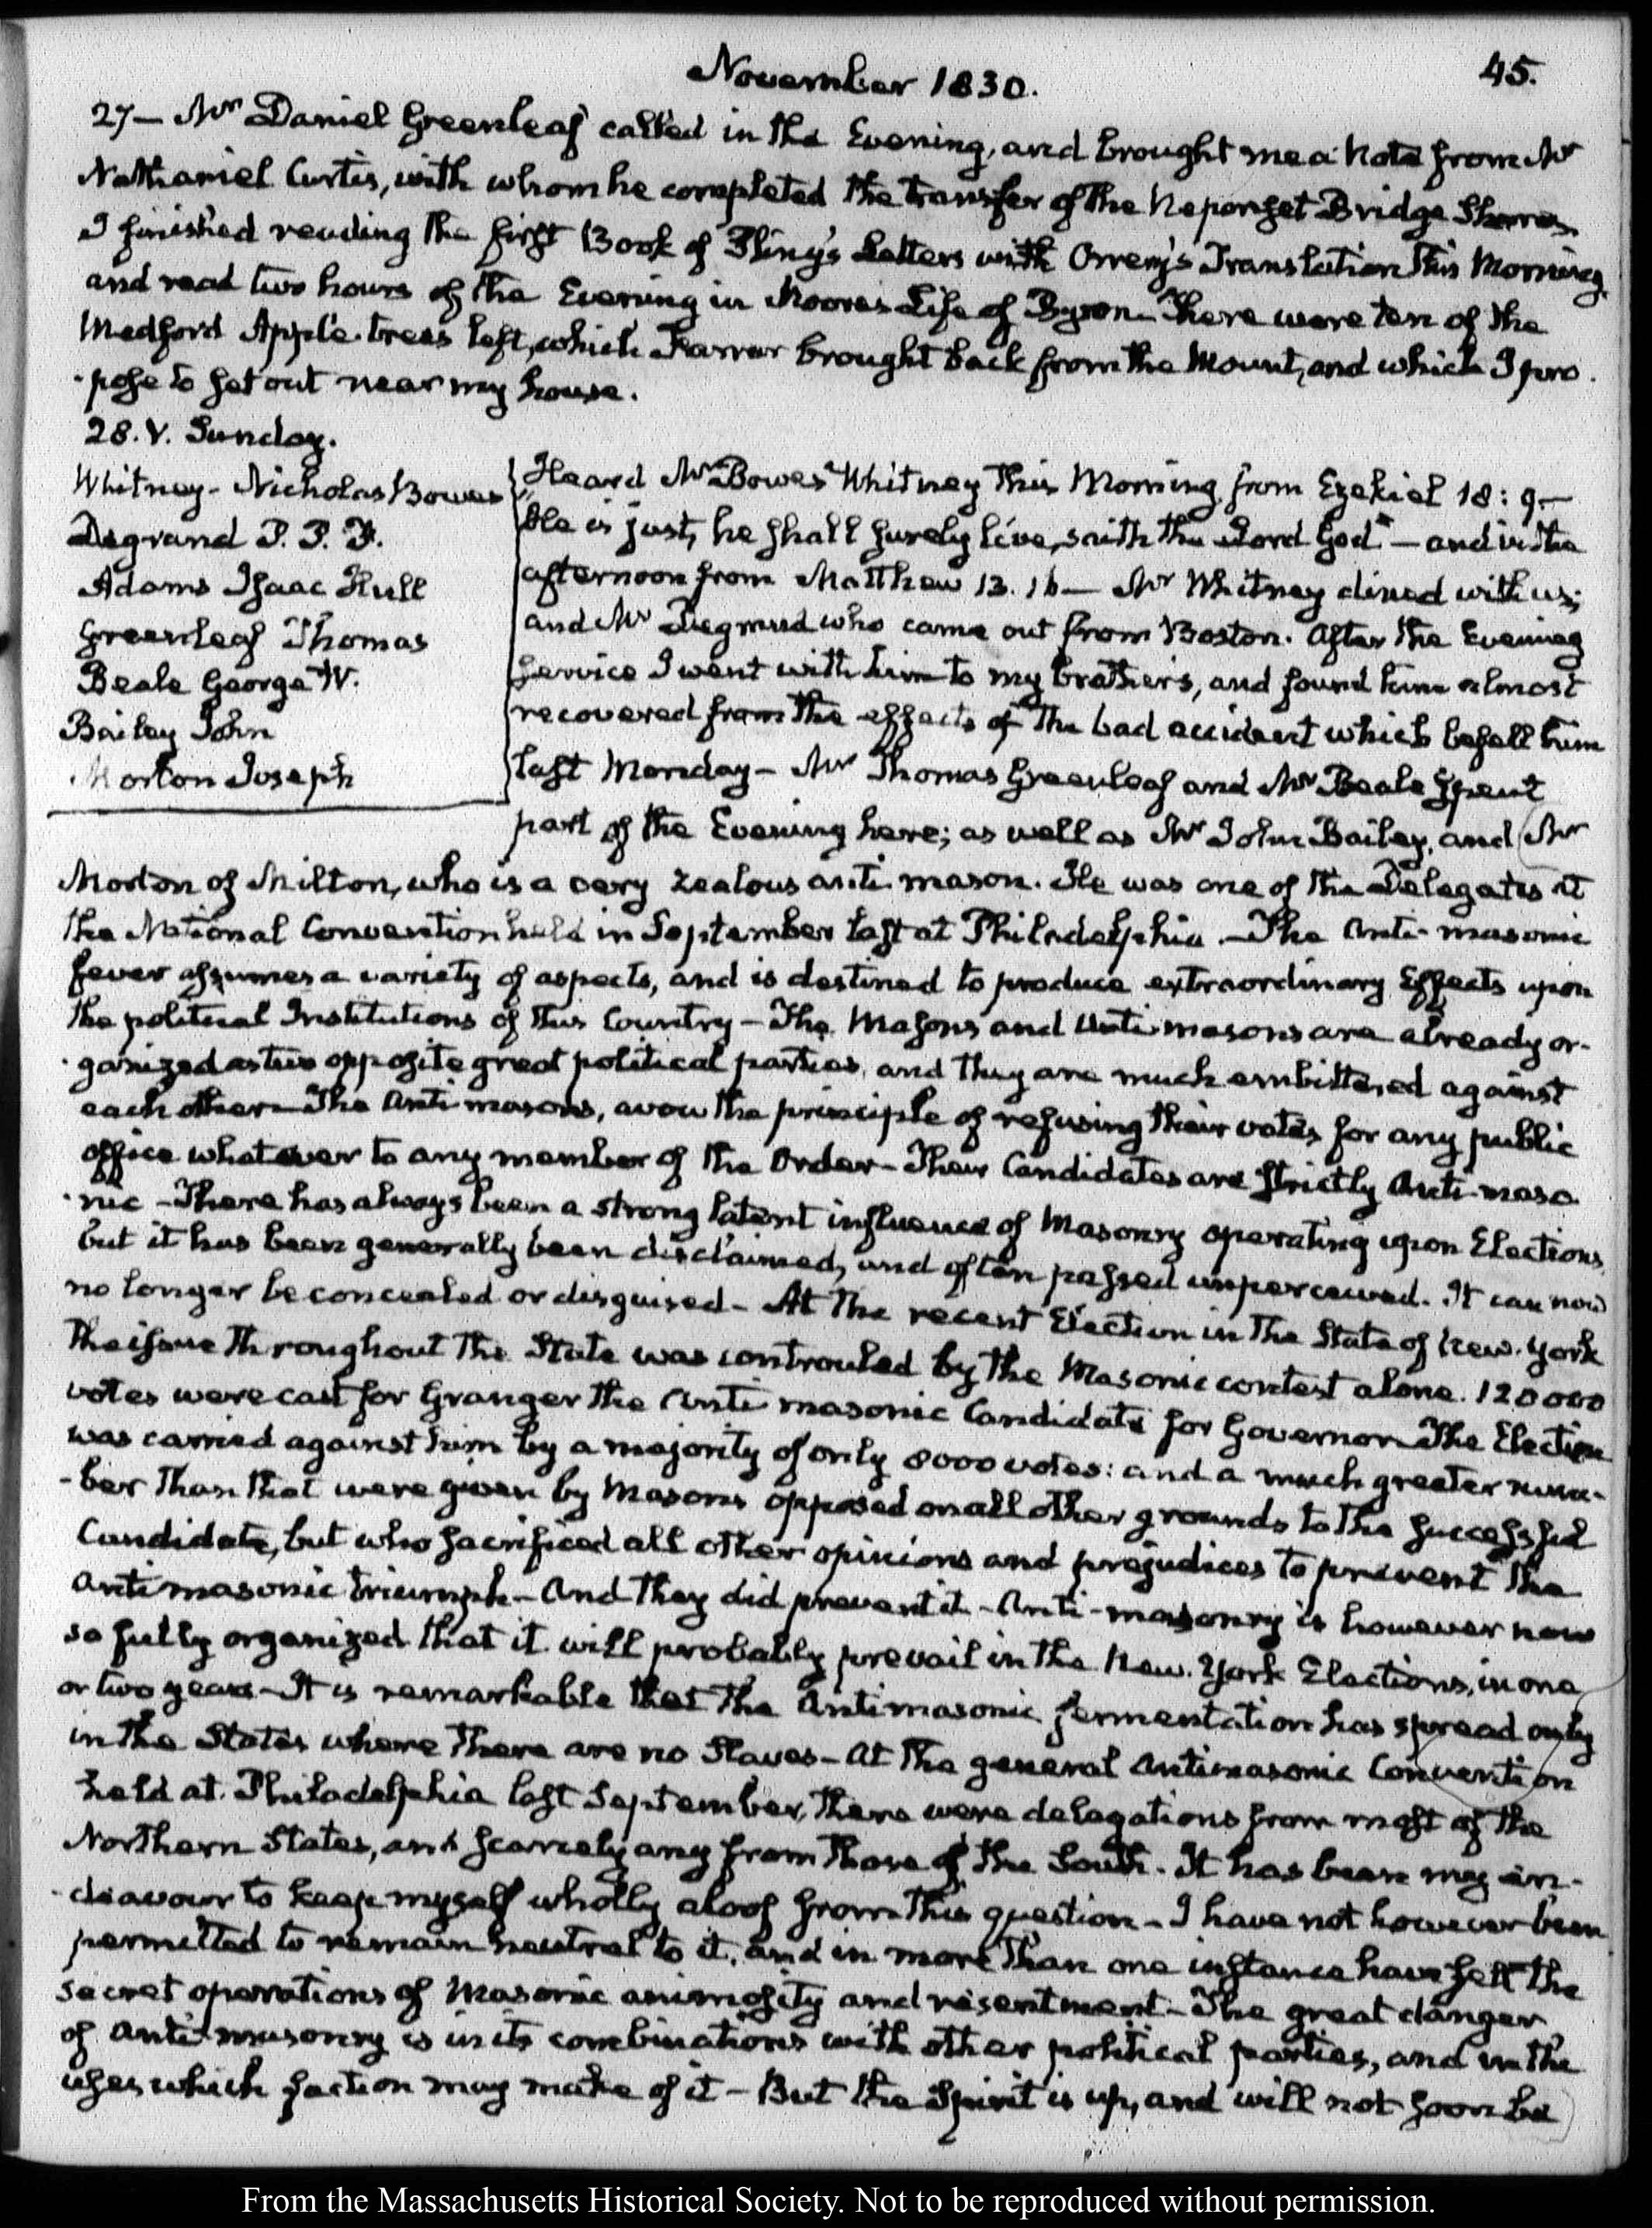 November 1830.
45.
27— Mr Daniel Greenleaf called in the Evening, and brought me a note from Mr
Nathaniel Curtis, with whom he completed the transfer of the Neponset Bridge Shares.
I finished reading the first Book of Pliny's Letters with Orrery's Translation this Morning.
and read two hours of the Evening in Moore's Life of Byron— There were ten of the
Medford Apple-trees left, which Farrar brought back from the Mount, and which I pro-
-pose to set out near my house.
28. V. Sunday.
Whitney- Nicholas Bowes
Degrand P. P. F.
Adams Isaac Hull
Greenleaf Thomas
Beale George W.
Bailey John
Morton Joseph
Heard Mr Bowes Whitney this Morning from Ezekiel 18:9—
"He is just, he shall surely live, saith the Lord God"— and in the
afternoon from Matthew 13. 16— Mr Whitney dined with us;
and Mr Degrand who came out from Boston. After the Evening
service I went with him to my brother's, and found him almost
recovered from the effects of the bad accident which befell him
last Monday— Mr Thomas Greenleaf and Mr Beale spent
part of the Evening here; as well as Mr John Bailey, and Mr
Morton of Milton, who is a very zealous anti-mason. He was one of the Delegates at
the National Convention held in September last at Philadelphia.— The Anti-masonic
fever assumes a variety of aspects, and is destined to produce extraordinary Effects upon
the political Institutions of this Country— The Masons and Anti-masons are already or-
-ganized as two opposite great political parties, and they are much embittered against
each other— The Anti-masons, avow the principle of refusing their votes for any public
office whatever to any member of the Order— Their Candidates are strictly Anti-maso-
-nic— There has always been a strong latent influence of Masonry operating upon Elections,
but it has been generally been disclaimed, and often passed unperceived. It can now
no longer be concealed or disguised— At the recent Election in the State of New-York
the issue throughout the State was controuled by the Masonic contest alone. 120 000
votes were cast for Granger the Anti masonic Candidate for Governor— The Election
was carried against him by a majority of only 8000 votes: and a much greater num-
-ber than that were given by Masons opposed on all other grounds to the successful
Candidate, but who sacrificed all other opinions and prejudices to prevent the
antimasonic triumph— And they did prevent it— Anti-masonry is however now
so fully organized that it will probably prevail in the New-York Elections, in one
or two years— It is remarkable that the Antimasonic fermentation has spread only
in the States where there are no Slaves— At the general Antimasonic Convention
held at Philadelphia last September, there were delegations from most of the
Northern States, and scarcely any from those of the South. It has been my en-
-deavour to keep myself wholly aloof from this question— I have not however been
permitted to remain neutral to it, and in more than one instance have felt the
secret operations of Masonic animosity and resentment— The great danger
of Anti-masonry is in its combinations with other political parties, and in the
uses which faction may make of it— But the Spirit is up, and will not soon be
From the Massachusetts Historical Society. Not to be reproduced without permission.